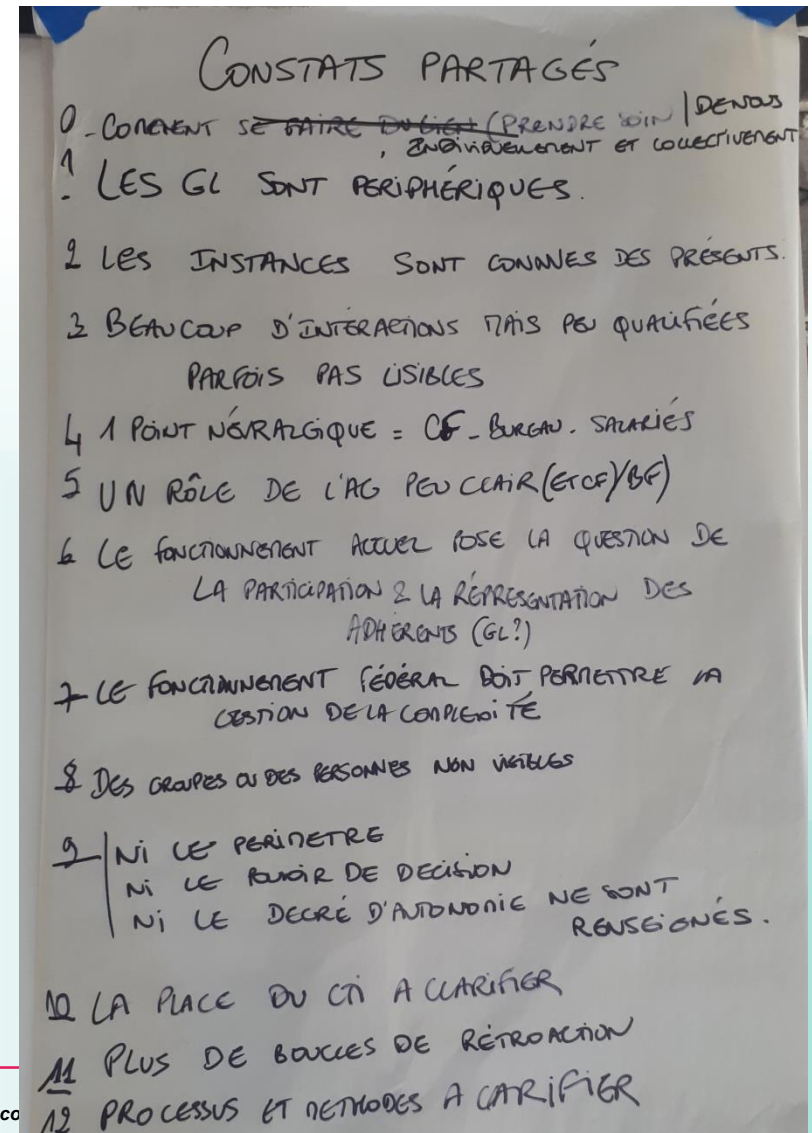 CONSTATS PARTAGÉS
0 - COMMENT SE FAIRE DU LIEN (PRENDRE SOIN | DE NOUS
, INDIVIDUELLEMENT ET COLLECTIVEMENT
1. LES GL SONT PERIPHÉRIQUES.
2 LES INSTANCES SONT CONNUES DES PRÉSENTS.
3 BEAUCOUP D'INTERACTIONS MAIS PEU QUALIFIÉES
PARFOIS PAS LISIBLES
4 1 POINT NÉVRALGIQUE = CF - BUREAU. SALARIÉS
5 UN RÔLE DE L'AG PEU CLAIR (ET CF)/BF)
6 LE FONCTIONNEMENT ACTUEL POSE LA QUESTION DE
LA PARTICIPATION & LA RÉPRESENTATION DES
ADHERENTS (GL?)
7 LE FONCTIONNEMENT FÉDÉRAL DOIT PERMETTRE LA
GESTION DE LA COMPLEXITÉ
8 DES GROUPES OU DES PERSONNES NON VISIBLES
9 | NI LE PERIMETRE
NI LE POUVOIR DE DECISION
NI LE DEGRÉ D'AUTONOMIE NE SONT
RENSEIGNÉS.
10 LA PLACE DU CTI A CLARIFIER
11 PLUS DE BOUCLES DE RÉTROACTION
co
12 PROCESSUS ET METHODES A CARIFIER